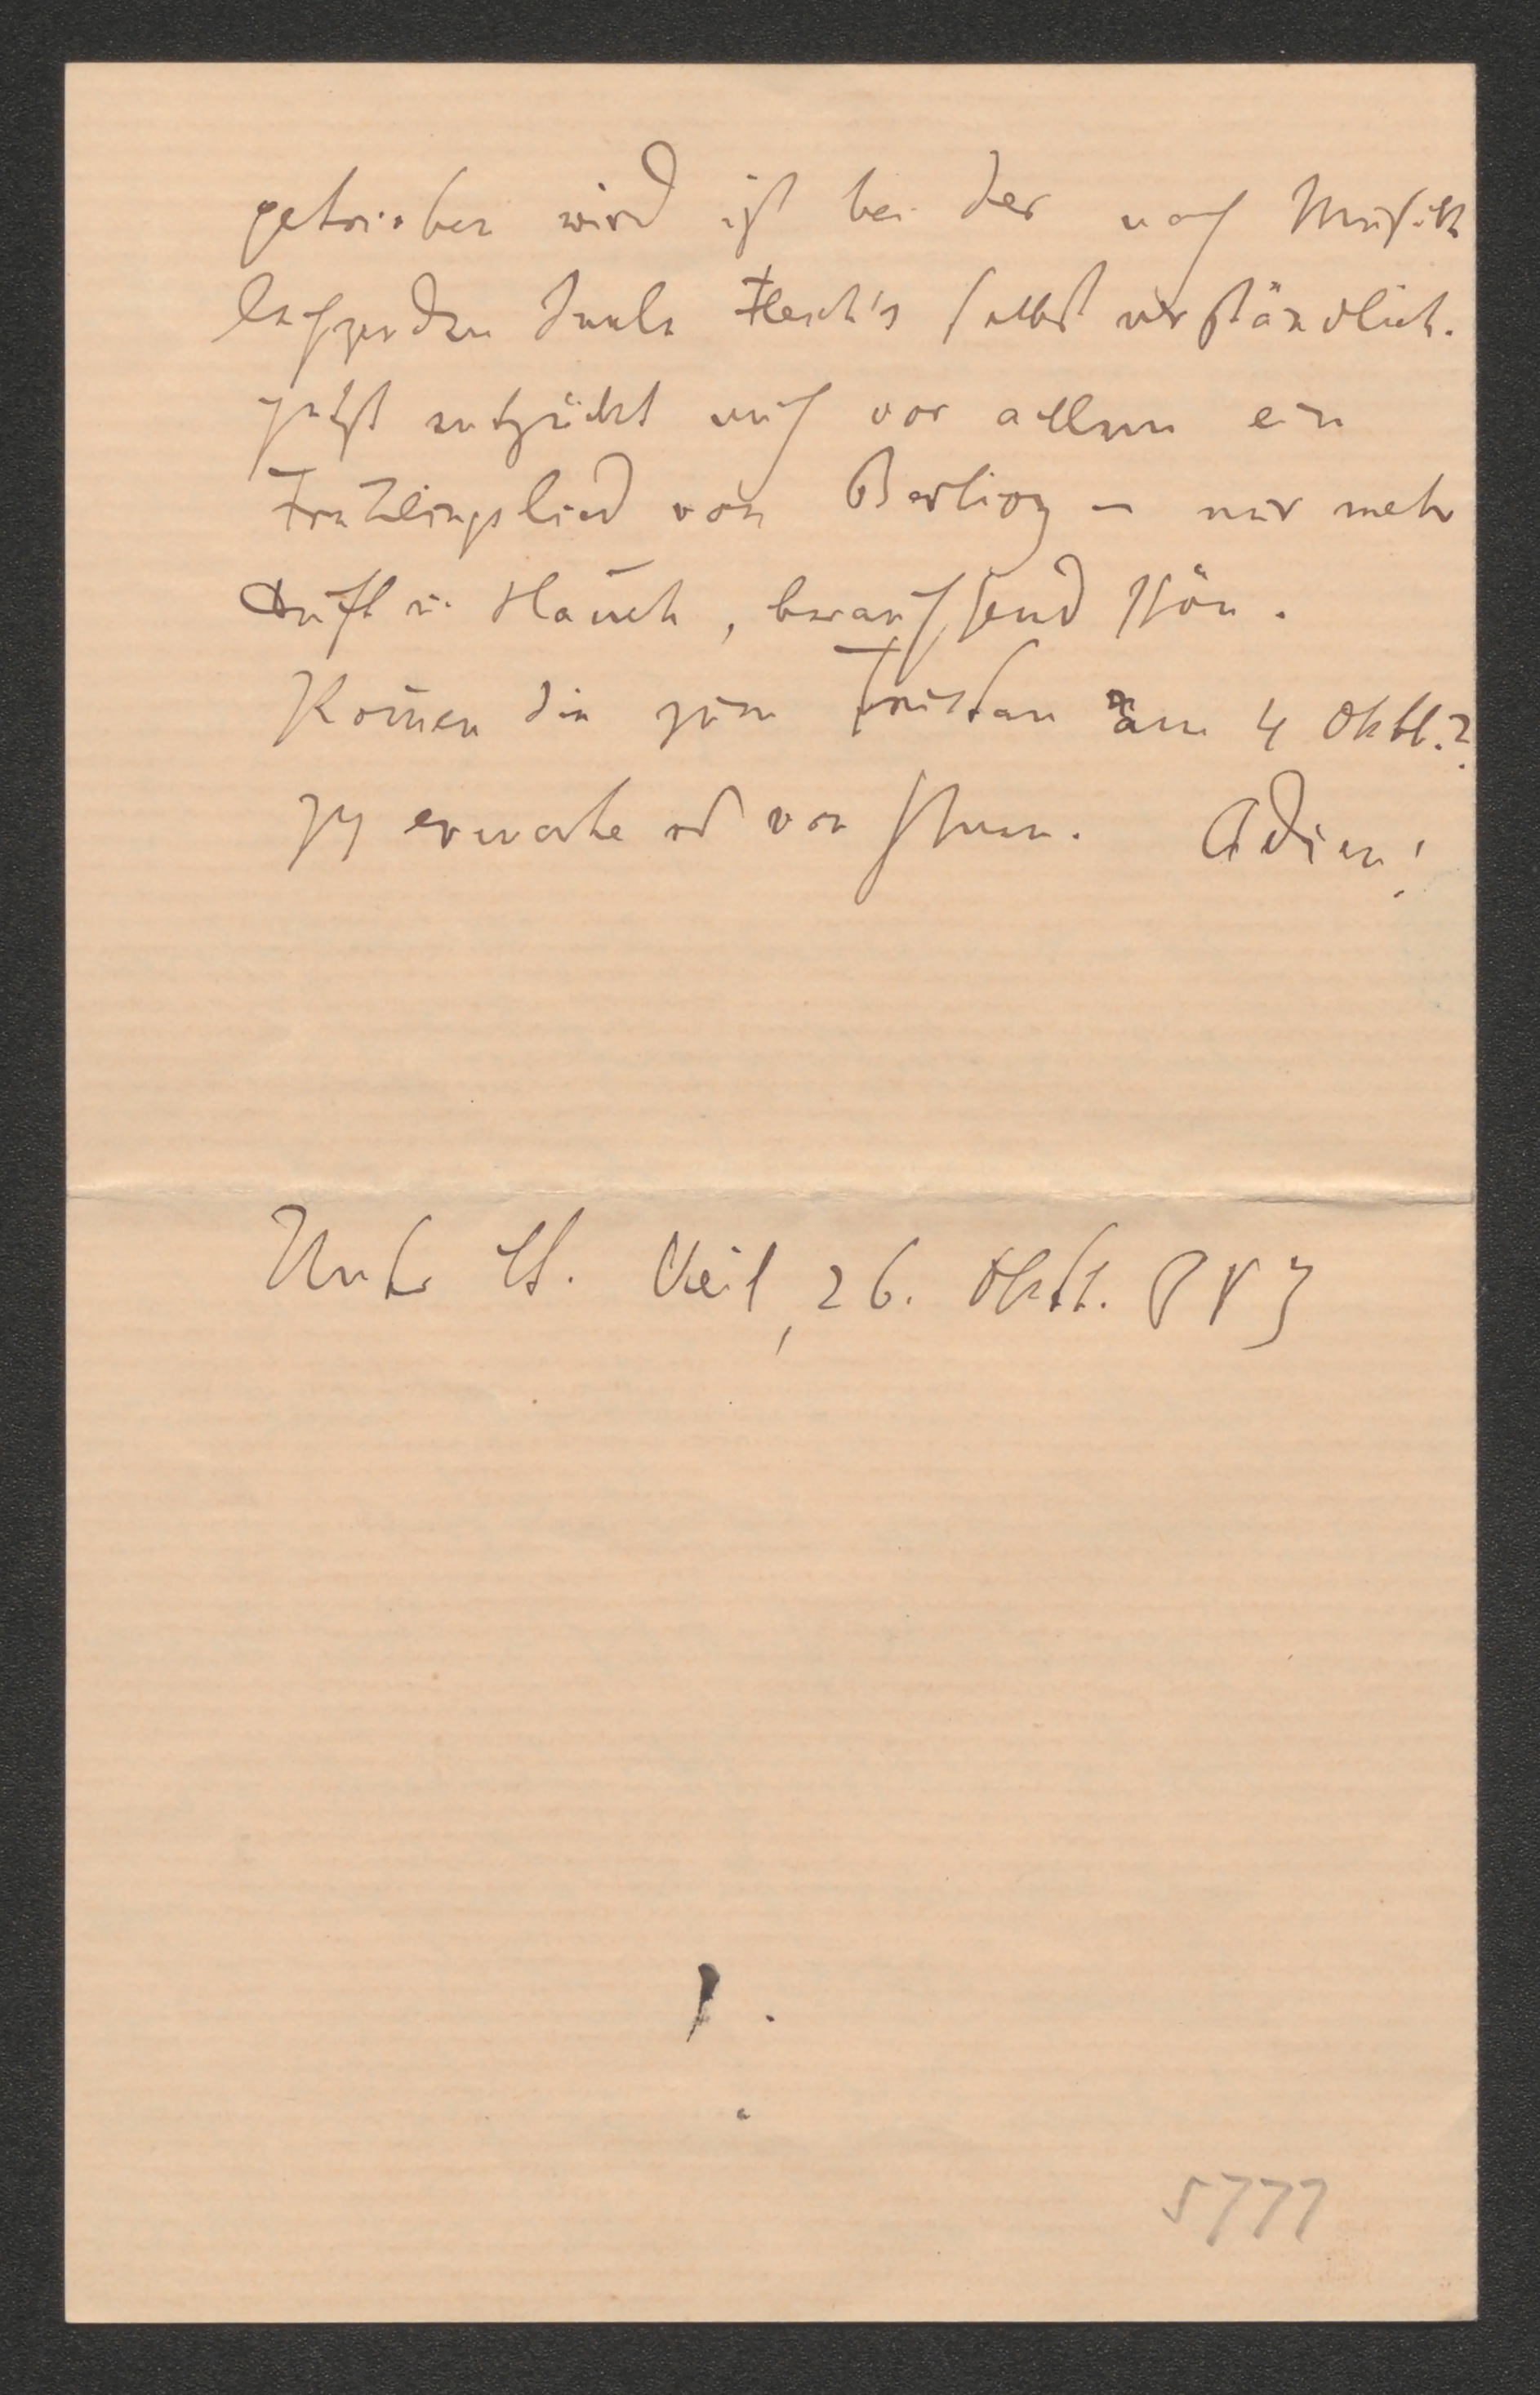 getrieben wird ist bei der nach Musik
lechzenden Seele Flesch's selbst verständlich.
Jetzt entzückt mich vor allem ein
Fruhlingslied von Berlioz – nur mehr
Duft u. Hauch, berauschend schön.
Kom̄en Sie zum Tristan am 4 Oktb.?
Ich erwarte es von Ihnen. Adieu!
Unter St. Veit, 26. Oktb. 893
5777